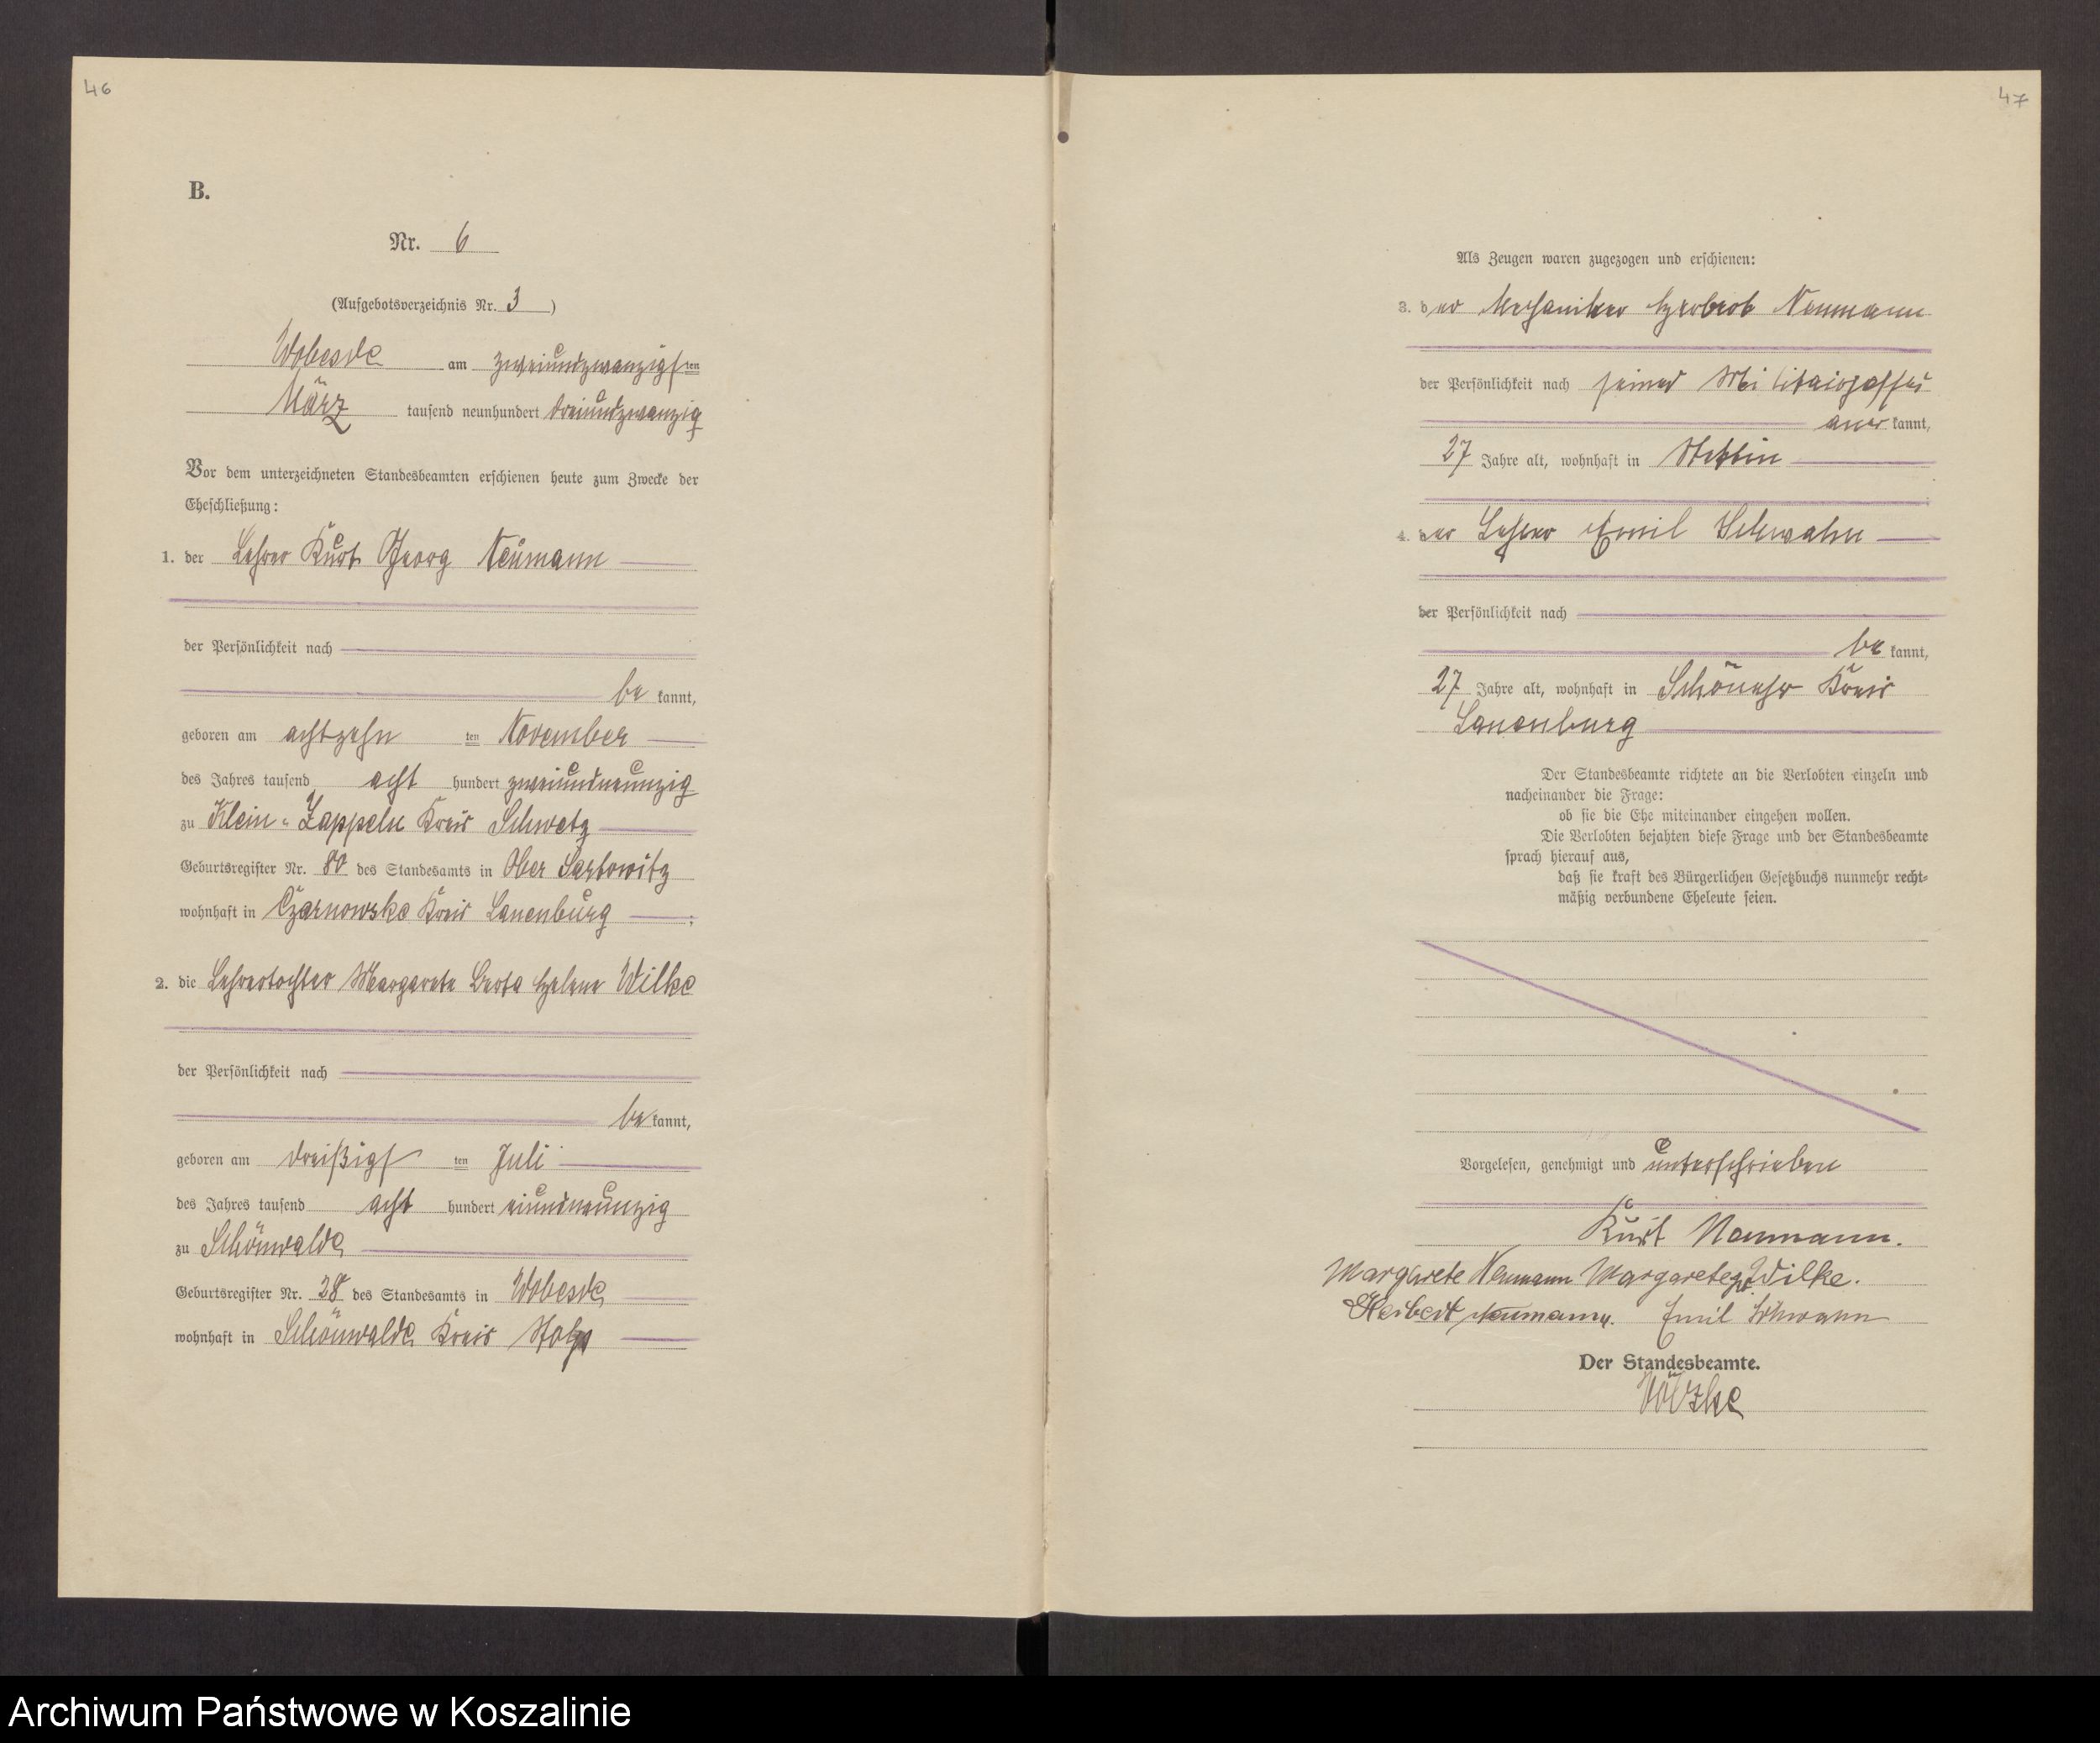 46
B.
Nr. 6
(Aufgebotsverzeichnis Nr. 3)
Wobesde am zweiundzwanzigsten
März tausend neunhundert dreiundzwanzig
Vor dem unterzeichneten Standesbeamten erschienen heute zum Zwecke der
Eheschließung:
1. der Lehrer Kurt Georg Neumann
der Persönlichkeit nach
bekannt,
geboren am achtzehnten November
des Jahres tausend acht hundert zweiundneunzig
zu Klein-Zappeln Kreis Schwetz
Geburtsregister Nr. 80 des Standesamts in Ober Sartowitz
wohnhaft in Czarnowske Kreis Lauenburg ;
2. die Lehrertochter Margarete Berta Helene Wilke
der Persönlichkeit nach
bekannt,
geboren am dreißigsten Juli
des Jahres tausend acht hundert einundneunzig
zu Schönwalde
Geburtsregister Nr. 28 des Standesamts in Wobesde
wohnhaft in Schönwalde Kreis Stolp
47
Als Zeugen waren zugezogen und erschienen:
3. der Mechaniker Herbert Neumann
der Persönlichkeit nach seines Militairpasses
anerkannt,
27 Jahre alt, wohnhaft in Stettin
4. der Lehrer Emil Schwahn
der Persönlichkeit nach
bekannt,
27 Jahre alt, wohnhaft in Schönehr Kreis
Lauenburg
Der Standesbeamte richtete an die Verlobten einzeln und
nacheinander die Frage:
ob sie die Ehe miteinander eingehen wollen.
Die Verlobten bejahten diese Frage und der Standesbeamte
sprach hierauf aus,
daß sie kraft des Bürgerlichen Gesetzbuchs nunmehr recht-
mäßig verbundene Eheleute seien.
Vorgelesen, genehmigt und unterschrieben
Kurt Neumann.
Margarete Neumann Margarete Wilke.
Herbert Neumann. Emil Schwahn
Der Standesbeamte.
Völzke
Archiwum Państwowe w Koszalinie